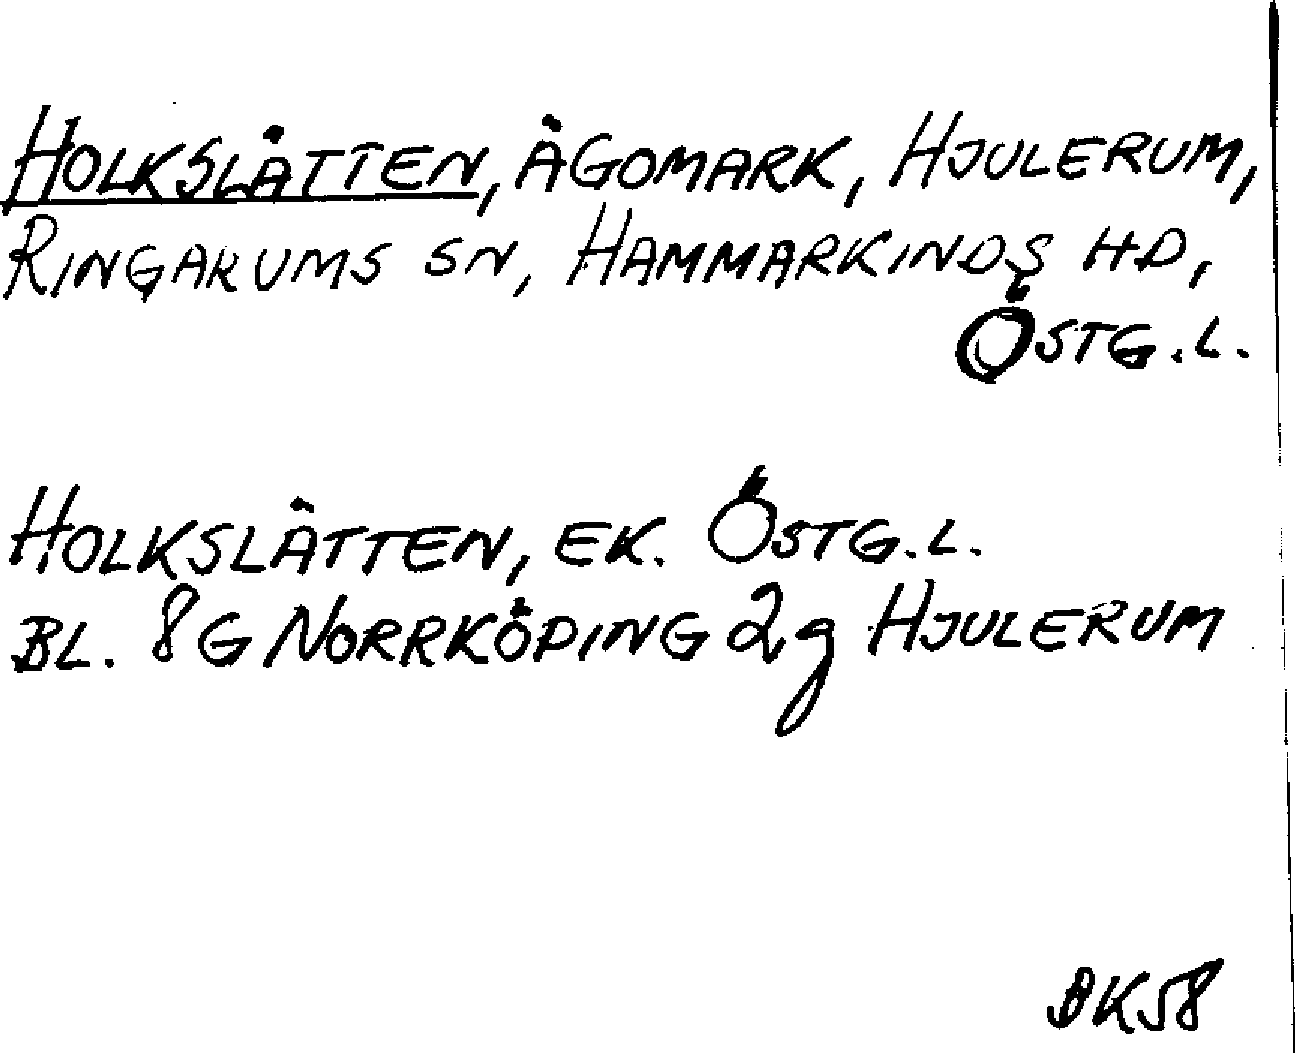 HOLKSLÄTTEN, ÄGOMARK, HJULERUM,
RINGARUMS SN, HAMMARKINDS HD,
ÖSTG.L.
HOLKSLÄTTEN, EK. ÖSTG.L.
BL. 8G NORRKÖPING 2g HJULERUM
BK58